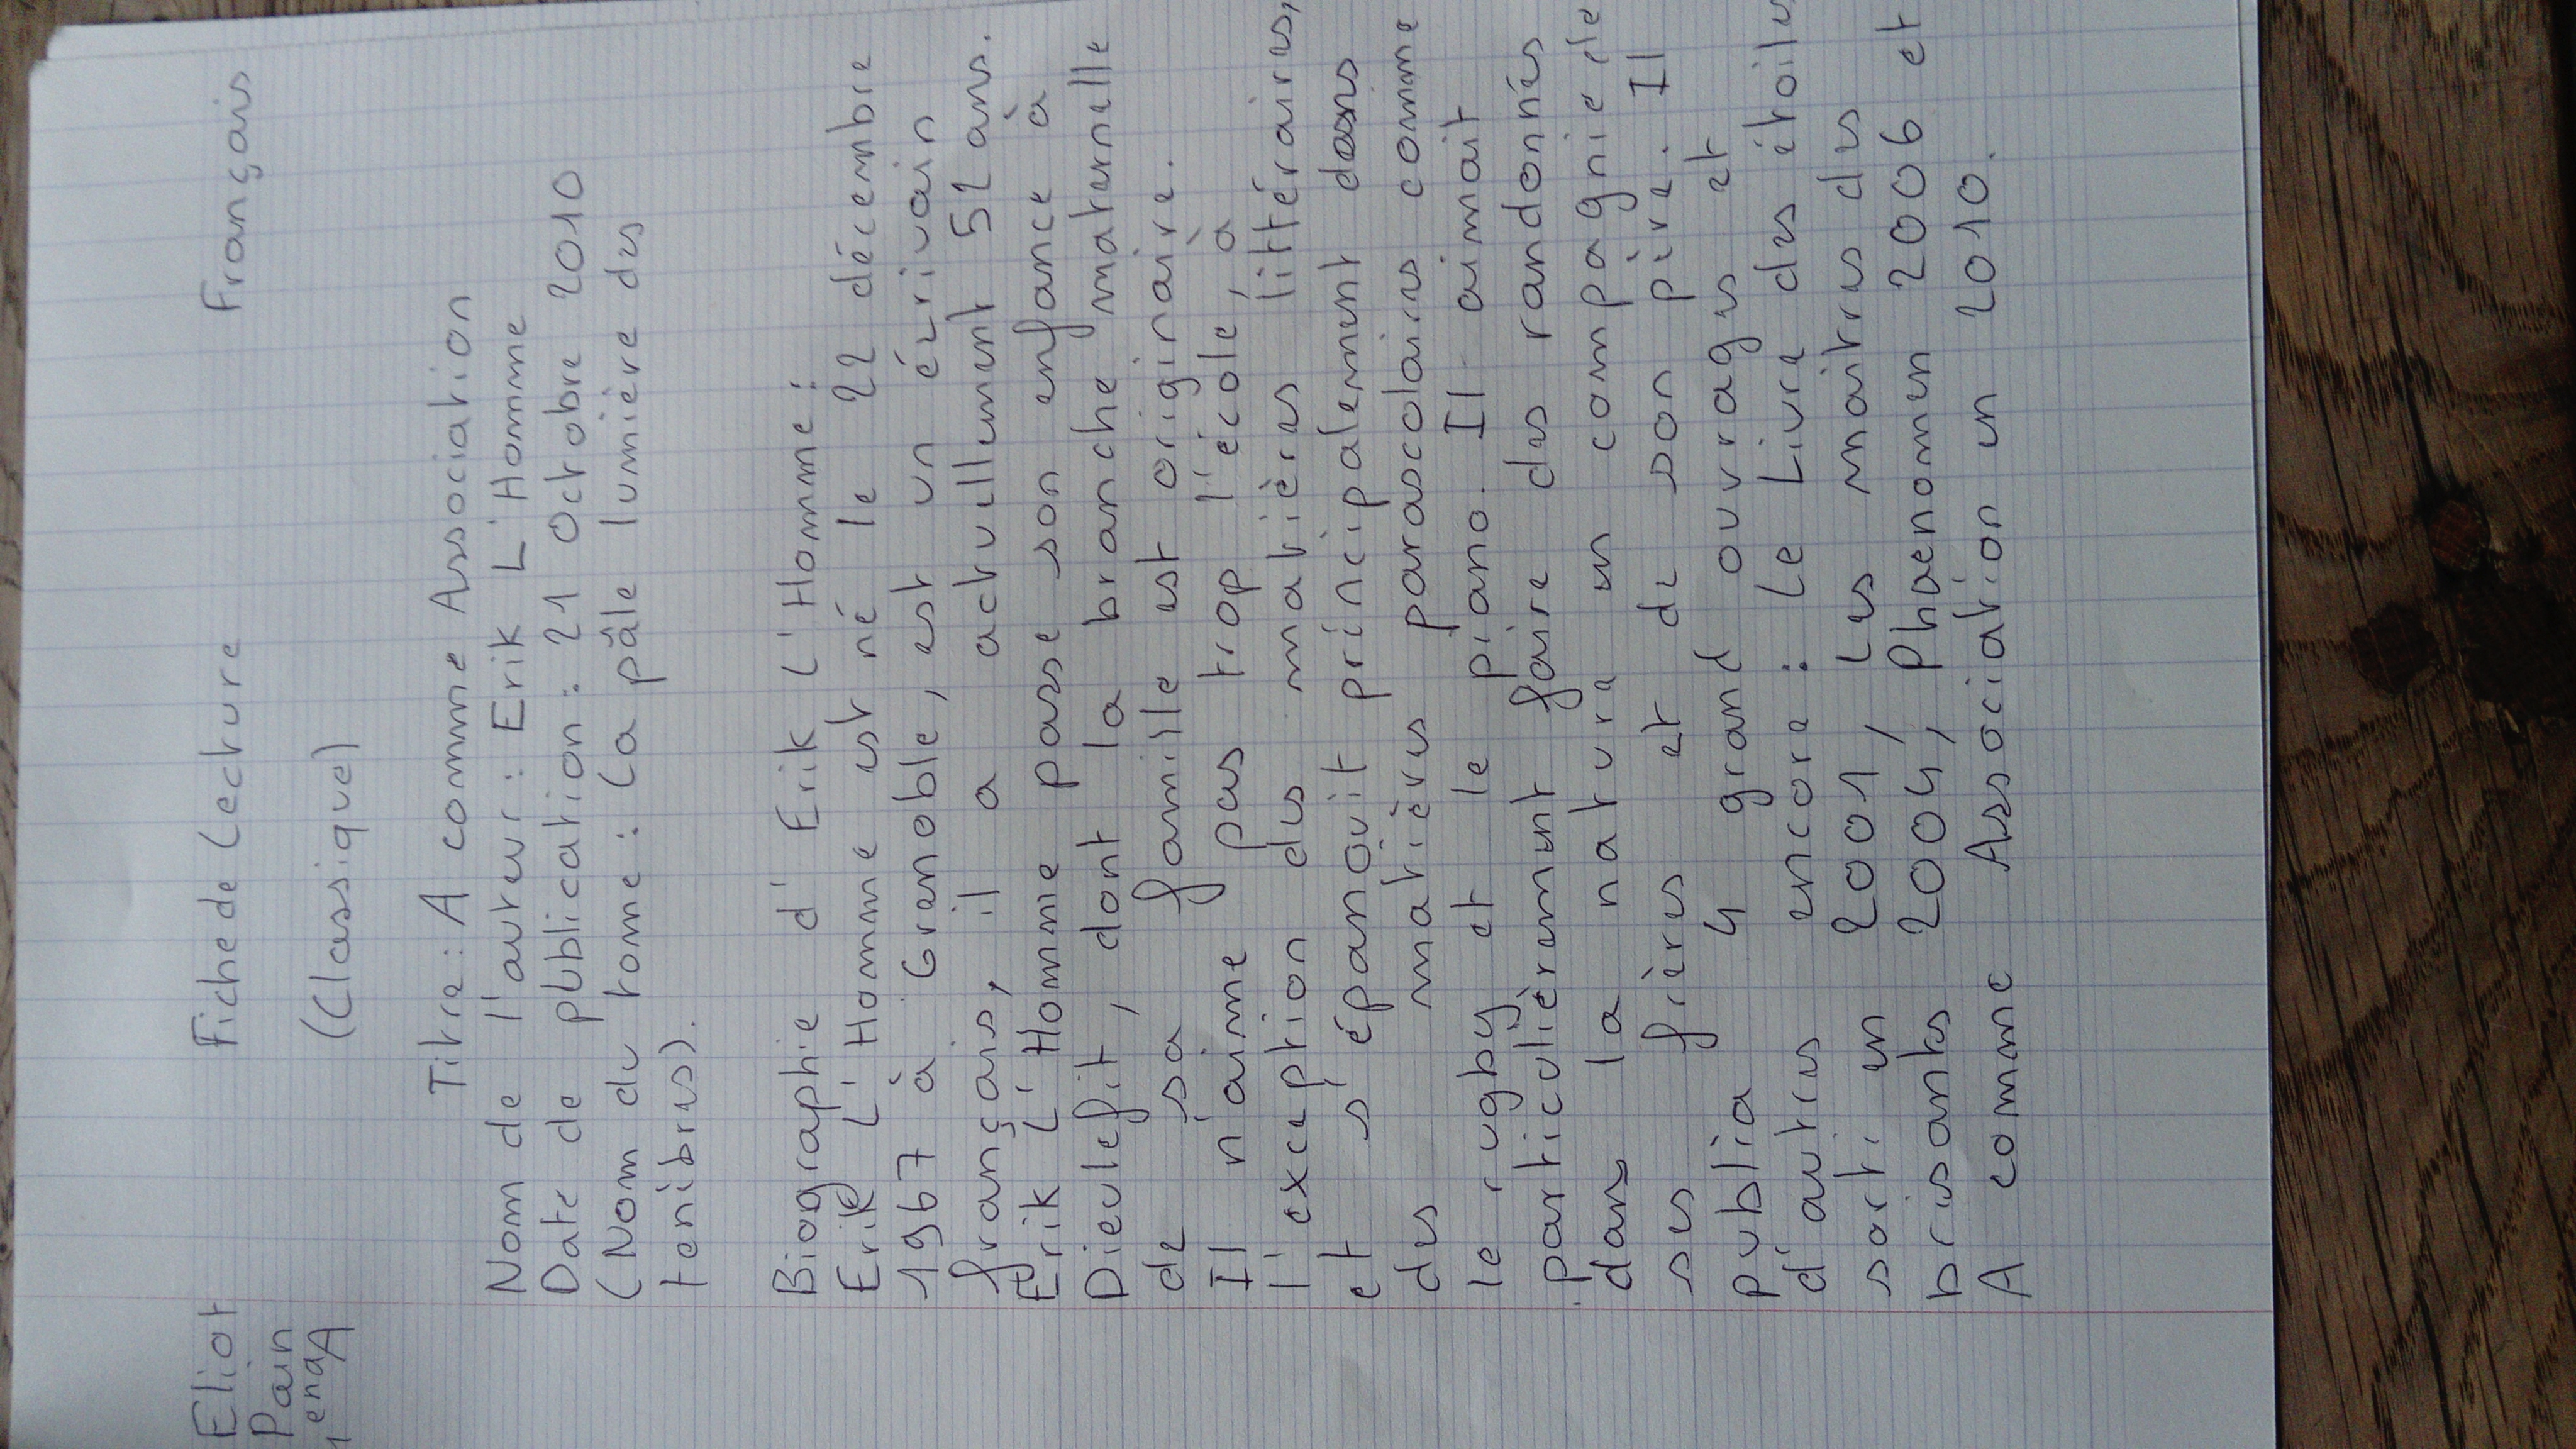 Eliot Fiche de Lecture Français
Pain
1enaA (Classique)
Titre : A comme Association
Nom de l'auteur : Erik L'Homme
Date de publication : 21 Octobre 2010
(Nom du tome : La pâle lumière des
tenibres).
Biographie d'Erik L'Homme :
Erik L'Homme est né le 22 décembre
1967 à Grenoble, est un écrivain
français, il a actuellement 52 ans.
Erik L'Homme passe son enfance à
Dieulefit, dont la branche maternelle
de sa famille est originaire.
Il n'aime pas trop l'école, à
l'exception des matières littéraires,
et s'épanouit principalement dans
des matières parascolaires comme
le rugby et le piano. Il aimait
particulièrement faire des randonnés
dans la nature en compagnie de
ses frères et de son père. Il
publia 4 grand ouvrages et
d'autres encore : Le Livre des étoiles
sorti en 2001, Les maitres des
brisants 2004, Phaenomen 2006 et
A comme Association en 2010.